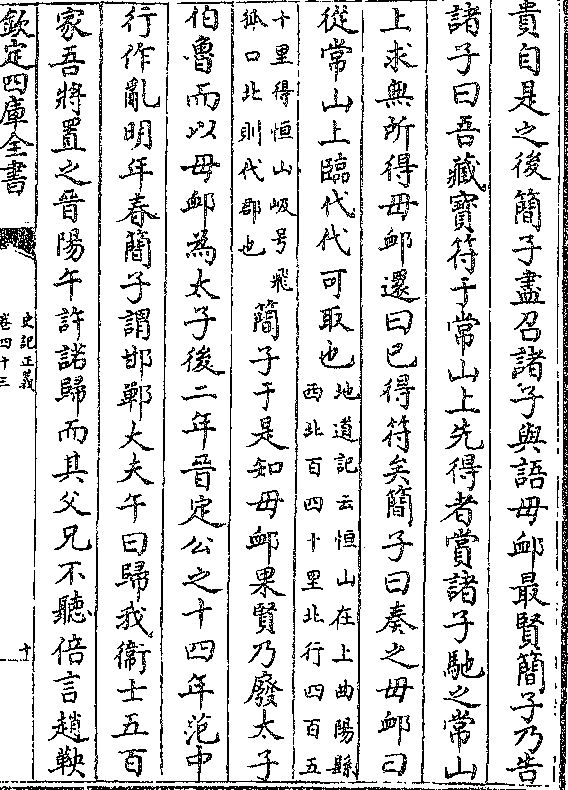 貴自是之後簡子盡召諸子與語毋䘏最賢簡子乃告
諸子曰吾藏寶符于常山上先得者賞諸子馳之常山
上求無所得毋䘏還曰已得符矣簡子曰奏之毋䘏曰
從常山上臨代代可取也地道記云恒山在上曲陽縣
西北百四十里北行四百五
十里得恒山岋号飛
狐口北則代郡也
簡子于是知毋䘏果賢乃廢太子
伯魯而以毋䘏為太子後二年晉定公之十四年范中
行作亂明年春簡子謂邯鄲大夫午曰歸我衞士五百
家吾將置之晉陽午許諾歸而其父兄不聽倍言趙鞅
欽定四庫全書
史記正義
卷四十三
十